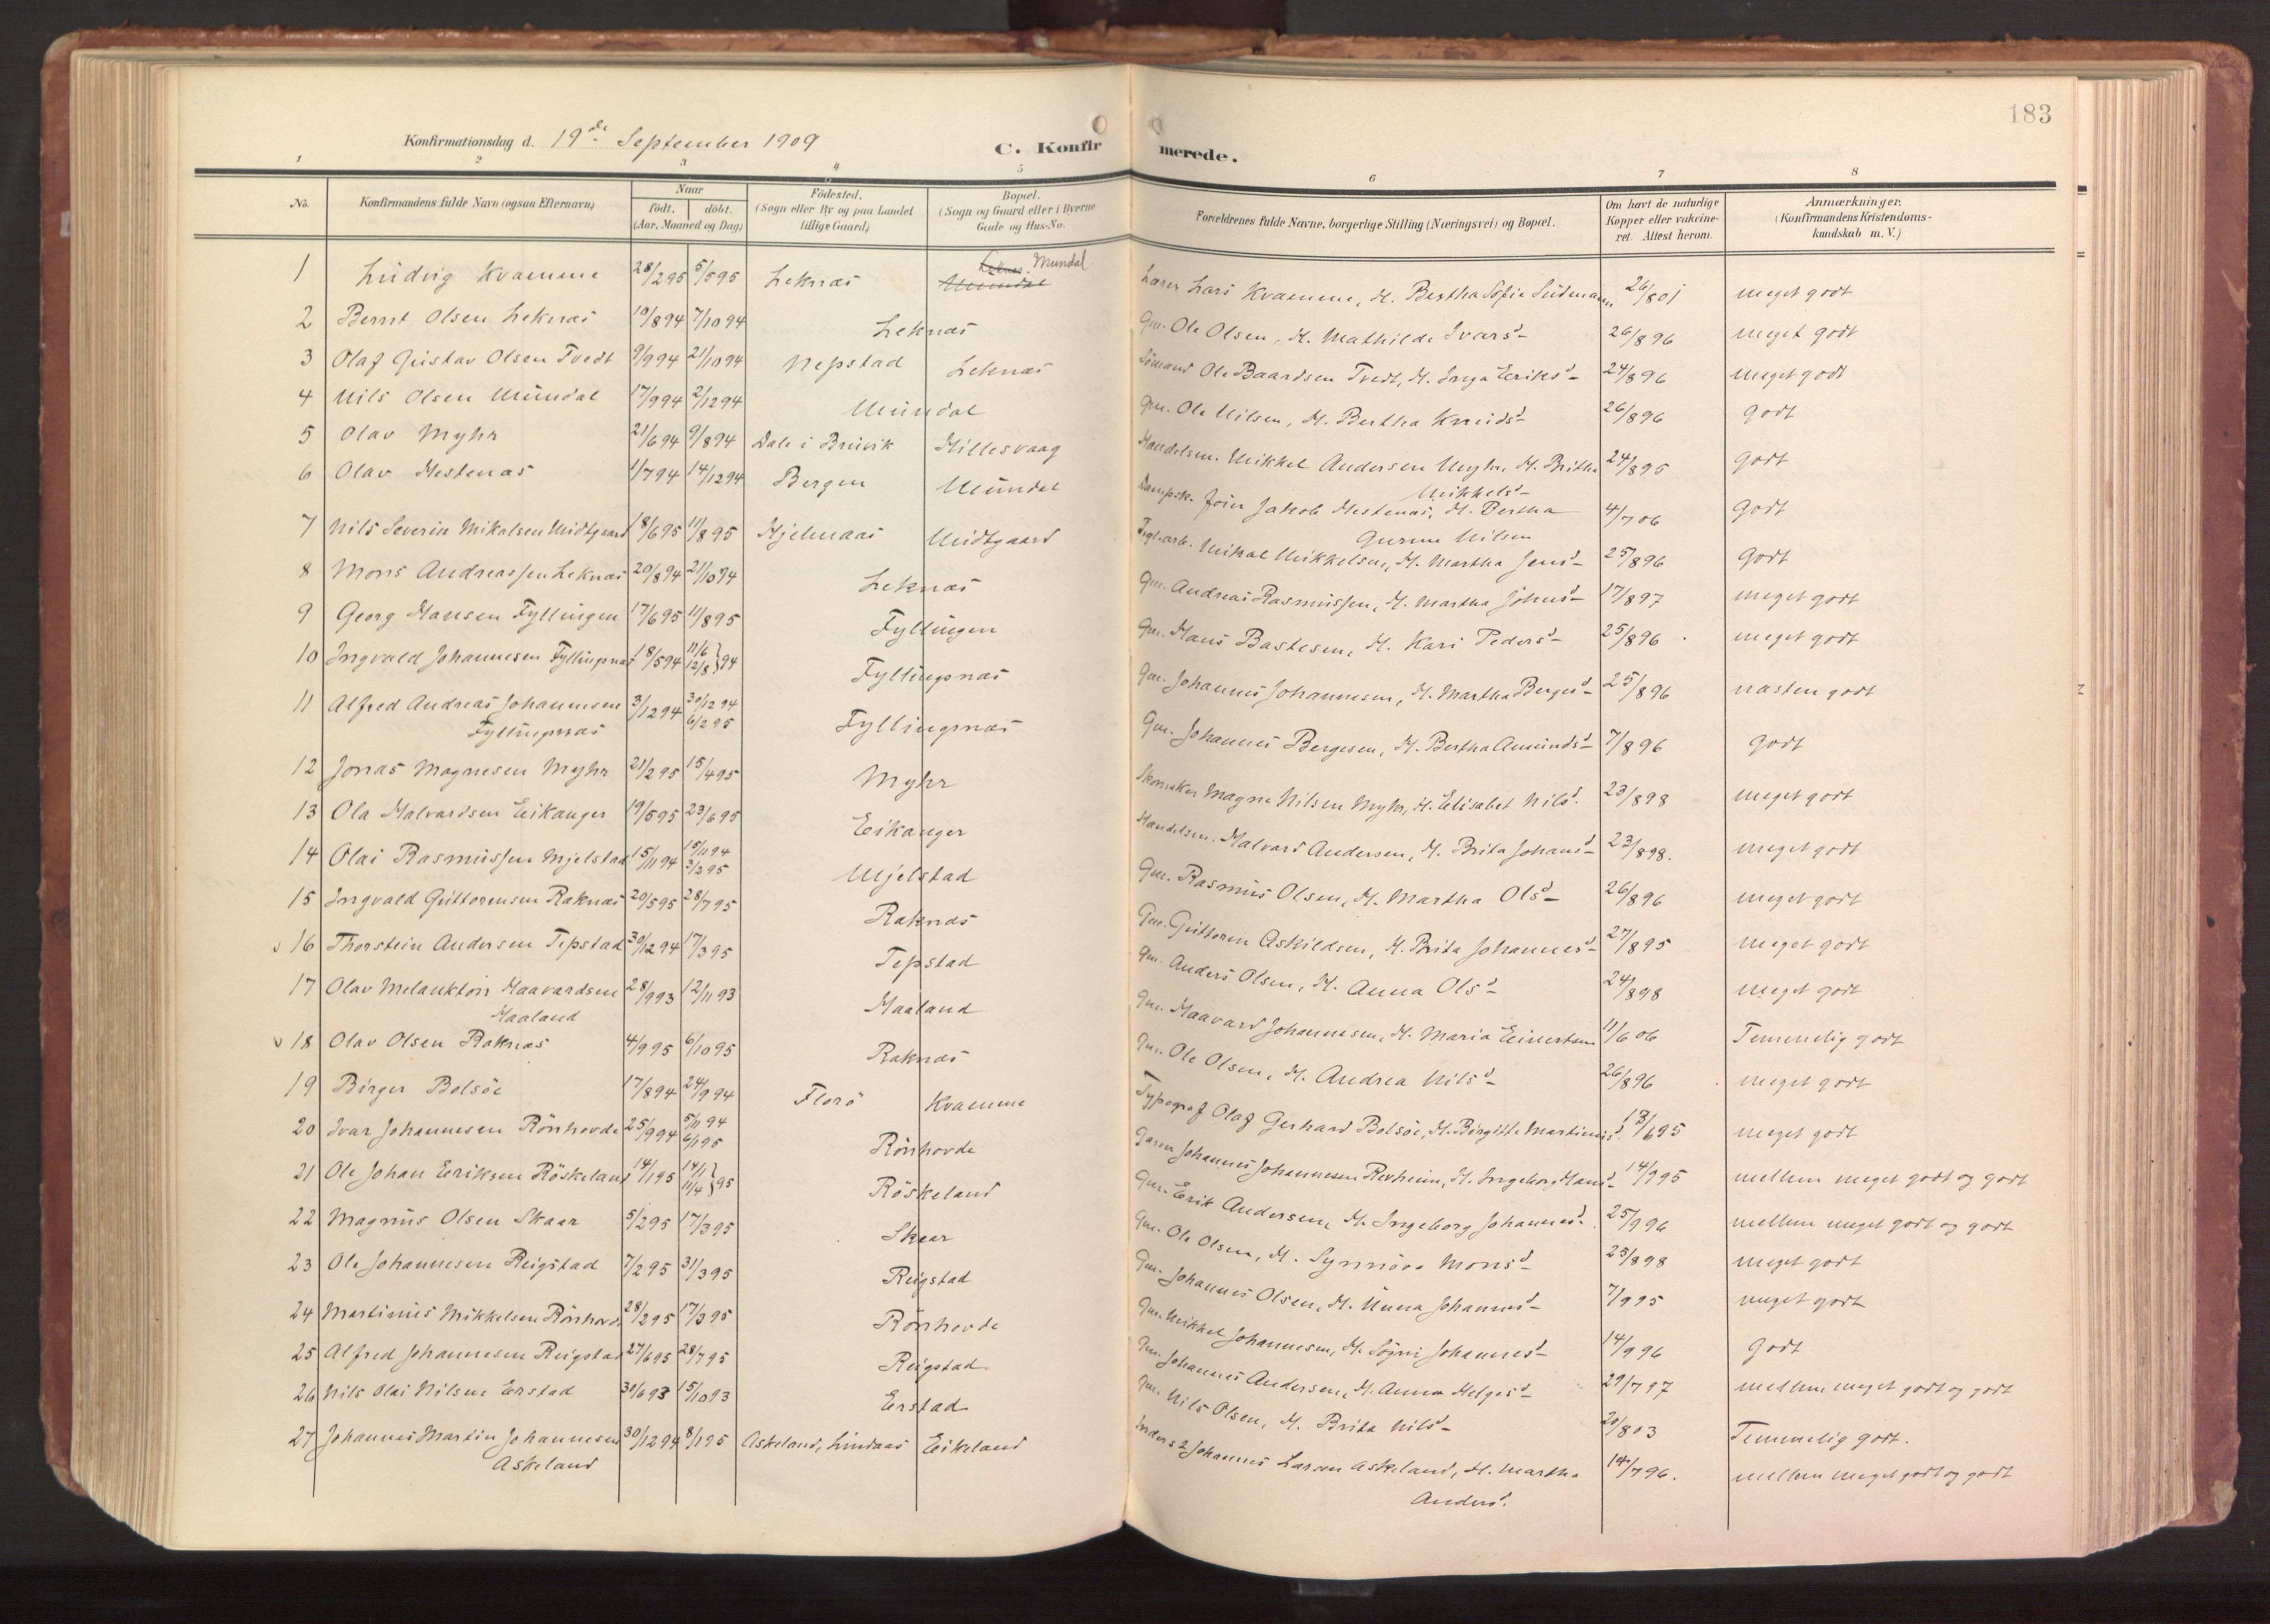 183
Konfirmationsdag d. 19de September 1909
C. Konfirmerede.
1 2 3 4 5 6 7 8
No. Konfirmandens fulde Navn (ogsaa Efternavn) Naar født. døbt. (Aar, Maaned og Dag) Fødested. (Sogn eller By og paa Landet tillige Gaard) Bopæl. (Sogn og Gaard eller i Byerne Gade og Hus-No. Forældrenes fulde Navne, borgerlige Stilling (Næringsvei) og Bopæl. Om havt de naturlige Kopper eller vakcineret. Attest herom. Anmærkninger. (Konfirmandens Kristendomskundskab m. V.)
1 Ludvig Kvamme 28/2 95 5/5 95 Leknæs Leknæs. Mundal Mundal Lærer Lars Kvamme, H. Bertha Sofie 26/8 01 meget godt
2 Bernt Olsen Leknæs 10/8 94 7/10 94 Leknæs Gm. Ole Olsen, H. Mathilde Ivarsd 26/8 96 meget godt
3 Olaf Gustav Olsen Tvedt 9/9 94 21/10 94 Nepstad Leknæs Sömand Ole Baardsen Tvedt, H. Inga Eriksd 24/8 96 meget godt
4 Nils Olsen Mundal 17/9 94 2/12 94 Mundal Gm. Ole Nilsen, H. Bertha Knudsd 26/8 96 godt
5 Olav Myhr 21/6 94 9/8 94 Dale i Bruvik Hillesvaag Handelsm. Mikkel Andersen Myhr, H. Britha Mikkelsd 24/8 95 godt
6 Olav Hestenæs 1/7 94 14/12 94 Bergen Mundal Dampsk. Jakob Hestenæs, H. Bertha Gurine Nilsen 4/7 06 godt
7 Nils Severin Mikalsen Midtgaard 18/6 95 11/8 95 Hjelmaas Midtgaard Tegl.arb. Mikal Mikkelsen, H. Martha Jensd 25/8 96 godt
8 Mons Andreassen Leknæs 20/8 94 21/10 94 Leknæs Gm. Andreas Rasmussen, H. Martha Johnsd 17/8 97 meget godt
9 Georg Hansen Fyllingen 17/6 95 11/8 95 Fyllingen Gm. Hans Bastesen, H. Kari Pedersd 25/8 96 meget godt
10 Ingvald Johannesen Fyllingsnæs 18/5 94 11/6 12/8 } 94 Fyllingsnæs Gm. Johannes Johannesen, H. Martha Bergesd 25/8 96 næsten godt
11 Alfred Andreas Johannesen Fyllingsnæs 3/12 94 30/12 94 6/2 95 Fyllingsnæs Gm. Johannes Bergesen, H. Bertha Amundsd 7/8 96 godt
12 Jonas Magnesen Myhr 21/2 95 15/4 95 Myhr Skomaker Magne Nilsen Myhr, H. Elisabet Nilsd. 23/8 98 meget godt
13 Ola Halvardsen Eikanger 19/5 95 23/6 95 Eikanger Handelsm. Halvard Andersen, H. Brita Johansd 23/8 98. meget godt
14 Olai Rasmussen Mjelstad 15/11 94 15/11 94 3/2 95 Mjelstad Gm. Rasmus Olsen, H. Martha Olsd 26/8 96 meget godt
15 Ingvald Guttormsen Raknæs 20/5 95 28/7 95 Raknæs Gm. Guttorm Askildsen, H. Brita Johannesd 27/8 95 meget godt
v 16 Thorstein Andersen Tepstad 30/12 94 17/3 95 Tepstad Gm. Anders Olsen, H. Anna Olsd 24/8 98 meget godt
17 Olav Melankton Haavardsen Maaland 28/9 93 12/11 93 Maaland Gm. Haavard Johannesen, H. Maria Einertsen 11/6 06 Temmelig godt
v 18 Olav Olsen Raknæs 4/9 95 6/10 95 Raknæs Gm. Ole Olsen, H. Andrea Nilsd 26/8 96 meget godt
19 Birger Bolsöe 17/8 94 24/9 94 Florö Kvamme Typograf Olaf Gerhard Bolsöe, H. Birgitte Martinusd. 13/6 95 meget godt
20 Ivar Johannesen Rönhovde 25/9 94 5/11 94 6/1 95 Rönhovde Gaarm. Johannes Johannesen Revheim, H. Ingeborg Hansd 14/9 95 mellem meget godt og godt
21 Ole Johan Eriksen Röskeland 14/1 95 14/1 11/4 } 95 Röskeland Gm. Erik Andersen, H. Ingeborg Johannesd. 25/9 96 mellem meget godt og godt
22 Magnus Olsen Skaar 5/2 95 17/3 95 Skaar Gm. Ole Olsen, H. Synnöva Monsd 23/8 98 meget godt
23 Ole Johannesen Reigstad 7/2 95 31/3 95 Reigstad Gm. Johannes Olsen, H. Unna Johannesd 7/9 95 meget godt
24 Martinus Mikkelsen Rönhovde 28/2 95 17/3 95 Rönhovde Gm. Mikkel Johannesen, H. Sögni Johannesd 14/9 96 godt
25 Alfred Johannesen Reigstad 27/6 95 28/7 95 Reigstad Gm. Johannes Andersen, H. Anna Helgesd 29/7 97 mellem meget godt og godt
26 Nils Olai Nilsen Erstad 30/6 93 15/10 93 Erstad Gm. Nils Olsen, H. Brita Nilsd 20/8 03 Temmelig godt.
27 Johannes Martin Johannesen Askeland 30/12 94 8/1 95 Askeland, Lindaas Eikeland Inders. Johannes Larsen Askeland, H. Martha Andersd. 14/7 96. mellem meget godt og godt